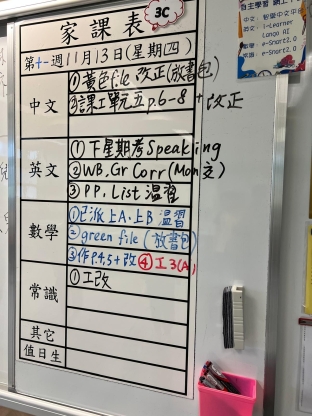 家課表
3C
第十一週11月13日(星期四)
中文
①黃色file 改正(放書包)
②課工單元五 p.6-8 + 改正
英文
①下星期考Speaking
②WB.Gr Corr(Mon交)
③P.P. List 溫習
數學
①已派上A.上B 溫習
②green file (放書包)
③作P4,5+改 ④工3(A)
常識
①工改
其它
值日生
自主學習 網上平
中文:智愛中文平台
英文:i-Learner
Lango AI
數學:e-Smart2.0
常識:e-Smart2.0